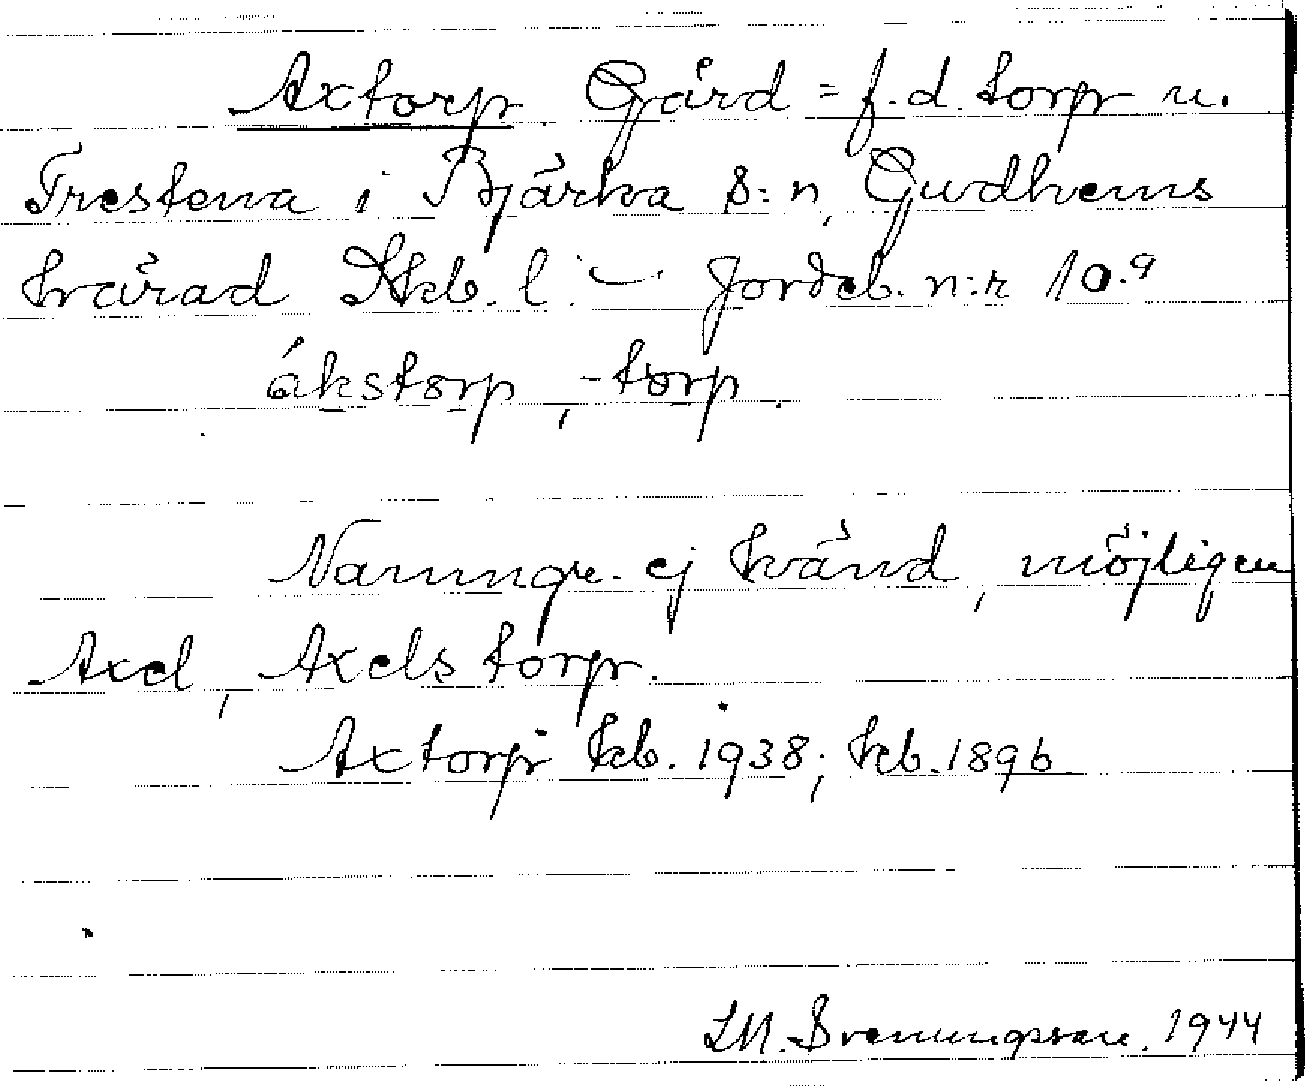 Axtorp Gård = f.d. torp u.
Trestena i Bjärka s:n, Gudhems
härad Skb. l. – Jordeb. n:r 10.9
ákstorp, -torp.
Namngr. ej känd, möjligen
Axel, Axelstorp.
Axtorp kb. 1938; kb. 1896
LM. Svenungsson. 1944